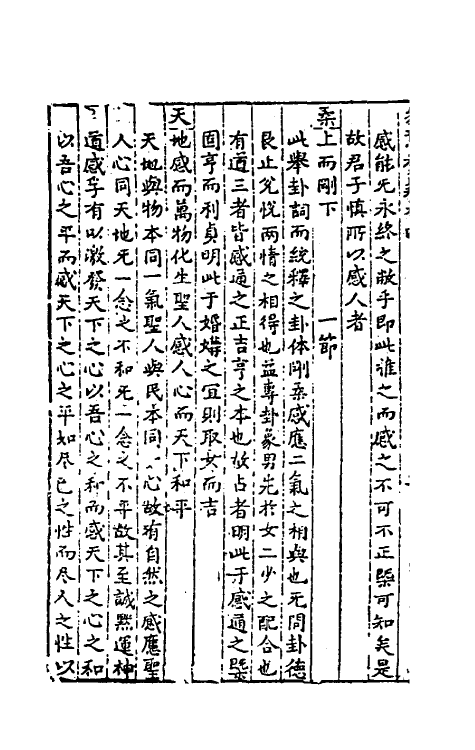 感能无永终之敝乎即此准之而感之不可不正槩可知矣是
故君子慎所以感人者
柔上而剛下 一節
此舉卦詞而統釋之卦体剛柔感應二氣之相與也无問卦德
艮止兌悦兩情之相得也益專卦象男先於女二少之配合也
有道三者皆感通之正吉亨之本也故占者明此于感通之槩
固亨而利貞明此于婚媾之宜則取女而吉
天地感而萬物化生聖人感人心而天下和平
天地與物本同一氣聖人與民本同一心故有自然之感應聖
人心同天地无一念之不和无一念之不平故其至誠黙運神
道感孚有以激發天下之心以吾心之和而感天下之心之和
以吾心之平而感天下之心之平如尽己之性而尽人之性以